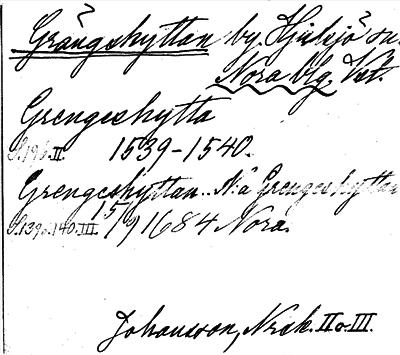 Grängshyttan by. Hjulsjö sn.
Nora blg. Vstl.
Grengeshytta
S.196.II. 1539-1540.
Grengeshyttan.. N:a Grengeshyttan
S.139o.140.III. 15/9 1684 Nora.
Johansson, Norsk. II o. III.